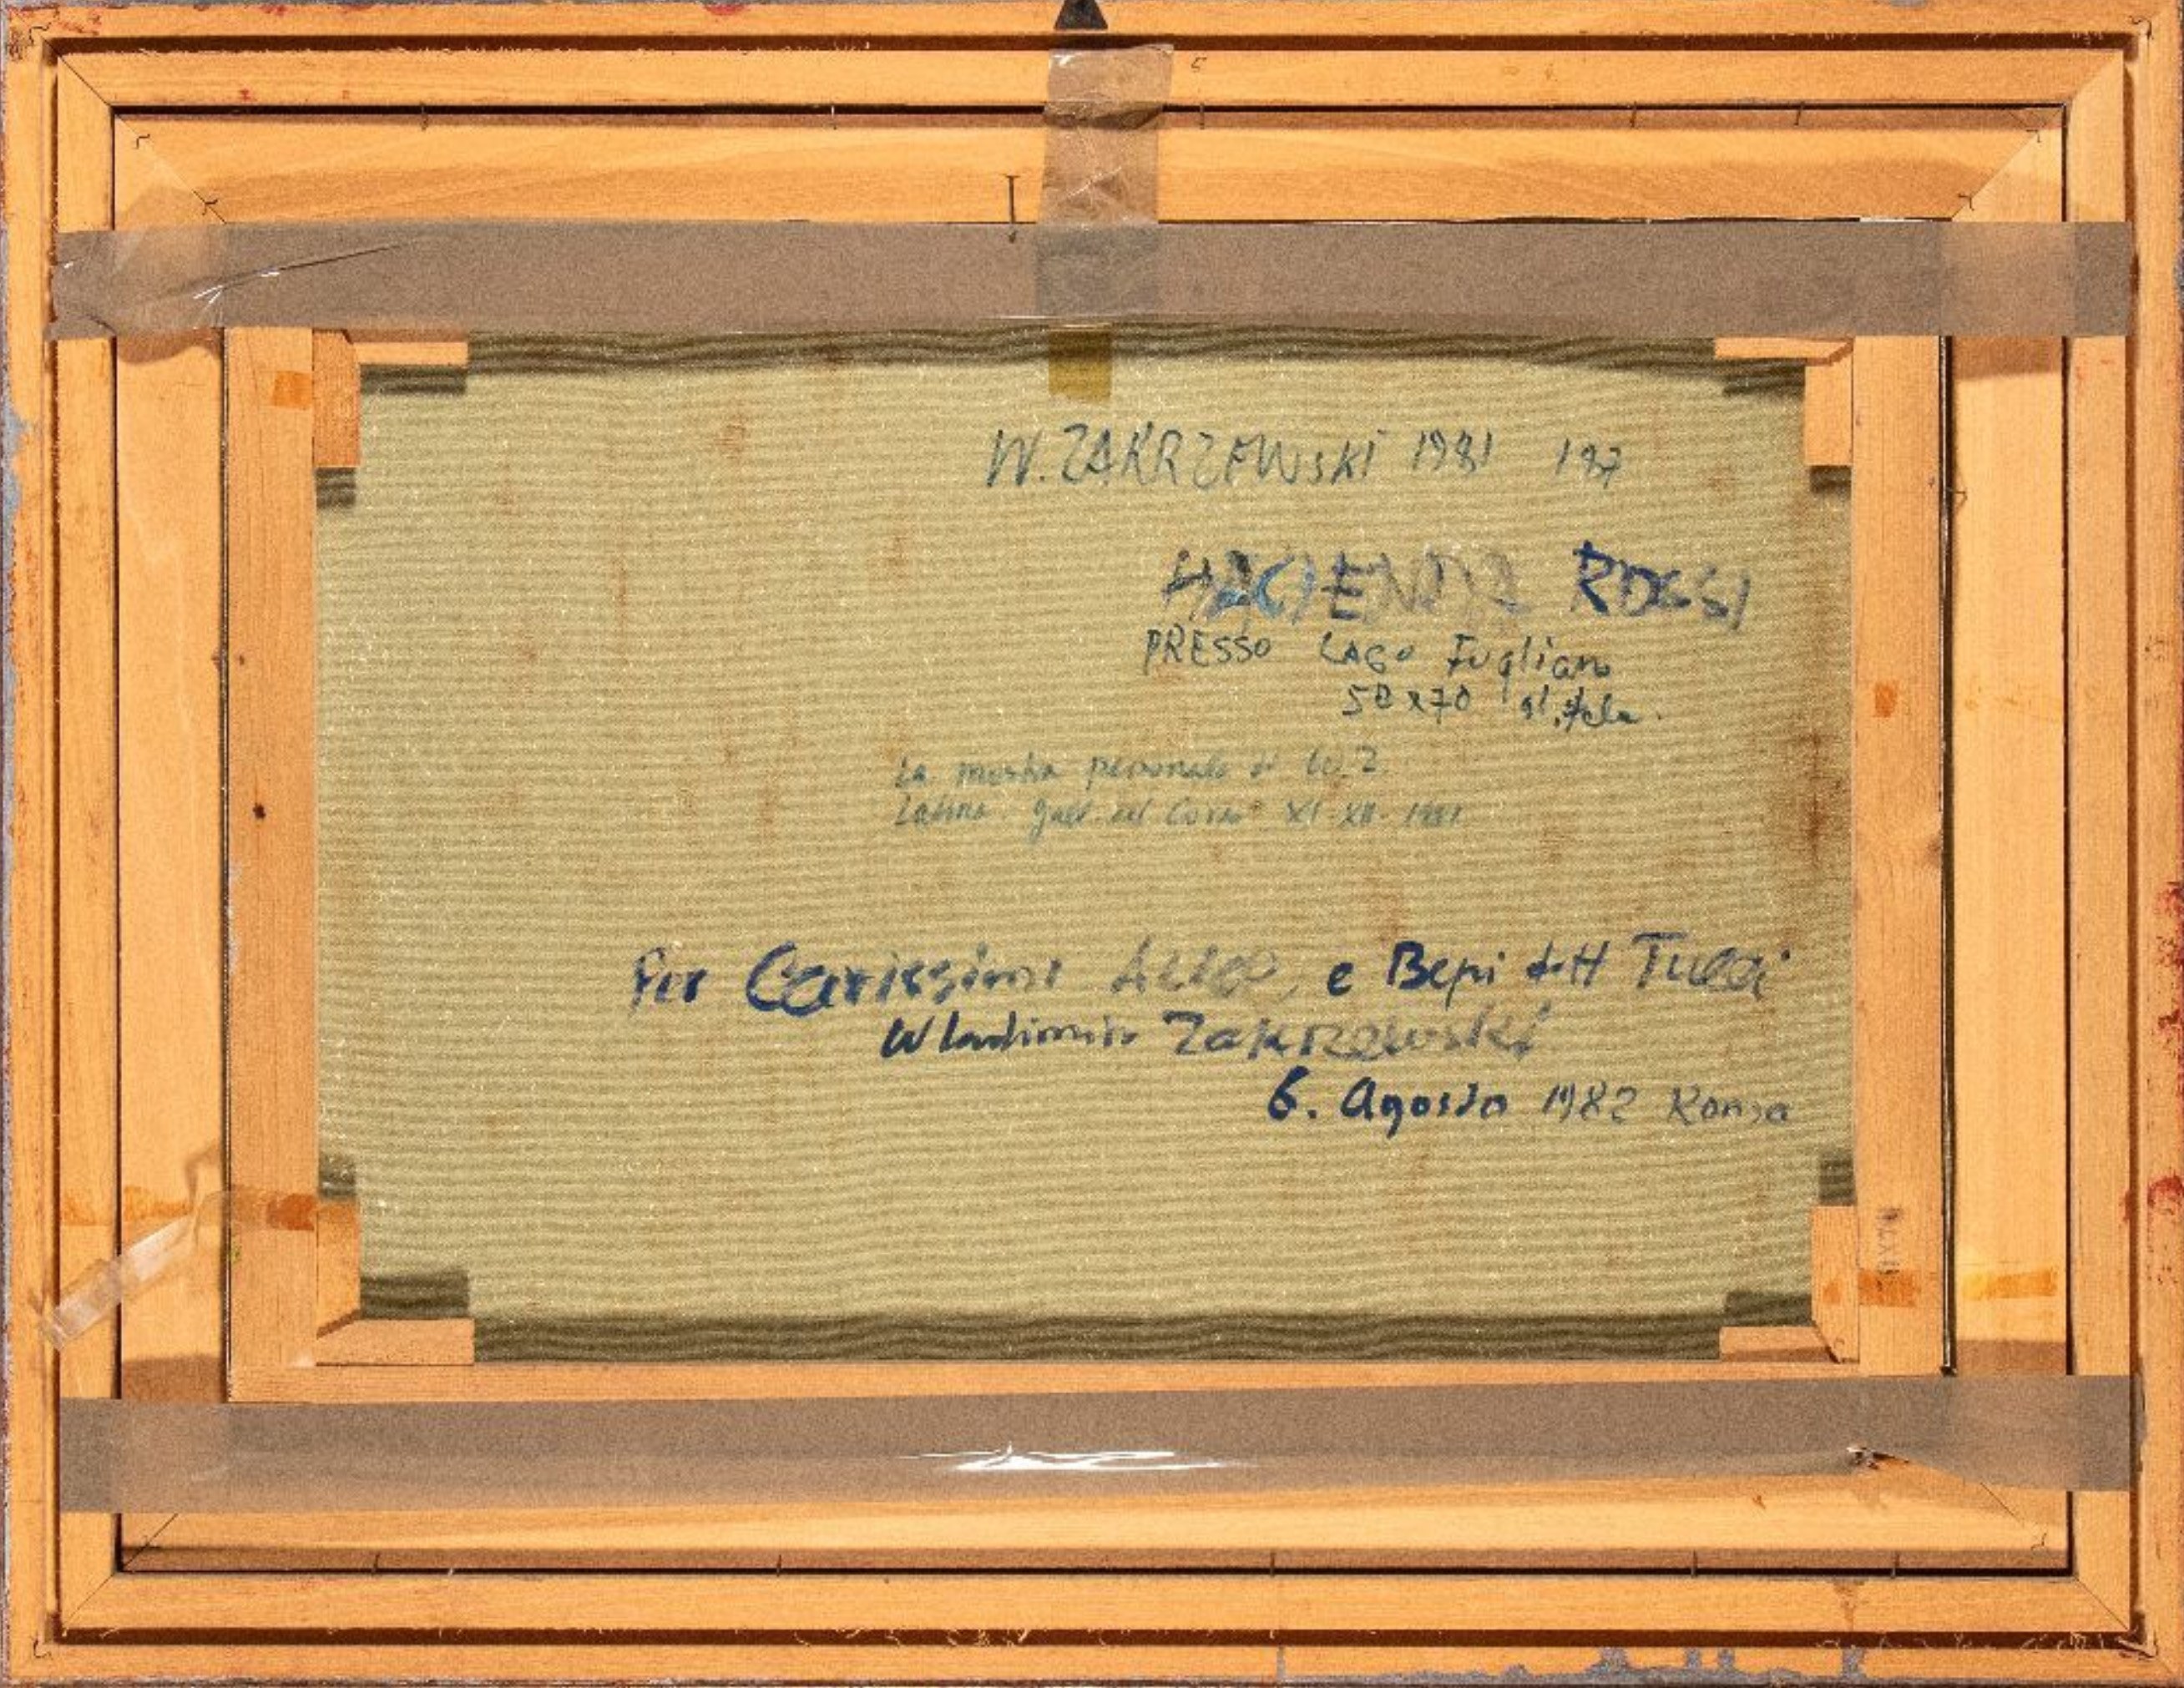 5
W. ZAKRZEWSKI 1981 197
HACIENDA ROSSI
PRESSO LAGO Fogliano
50x70 ol. tela.
La mostra personale di W.Z.
Latina Gall. del Corso XI-XII-1981
Per Carissimi e Bepi dott Tucci
Wladimir Zakrzewski
6. Agosto 1982 Roma